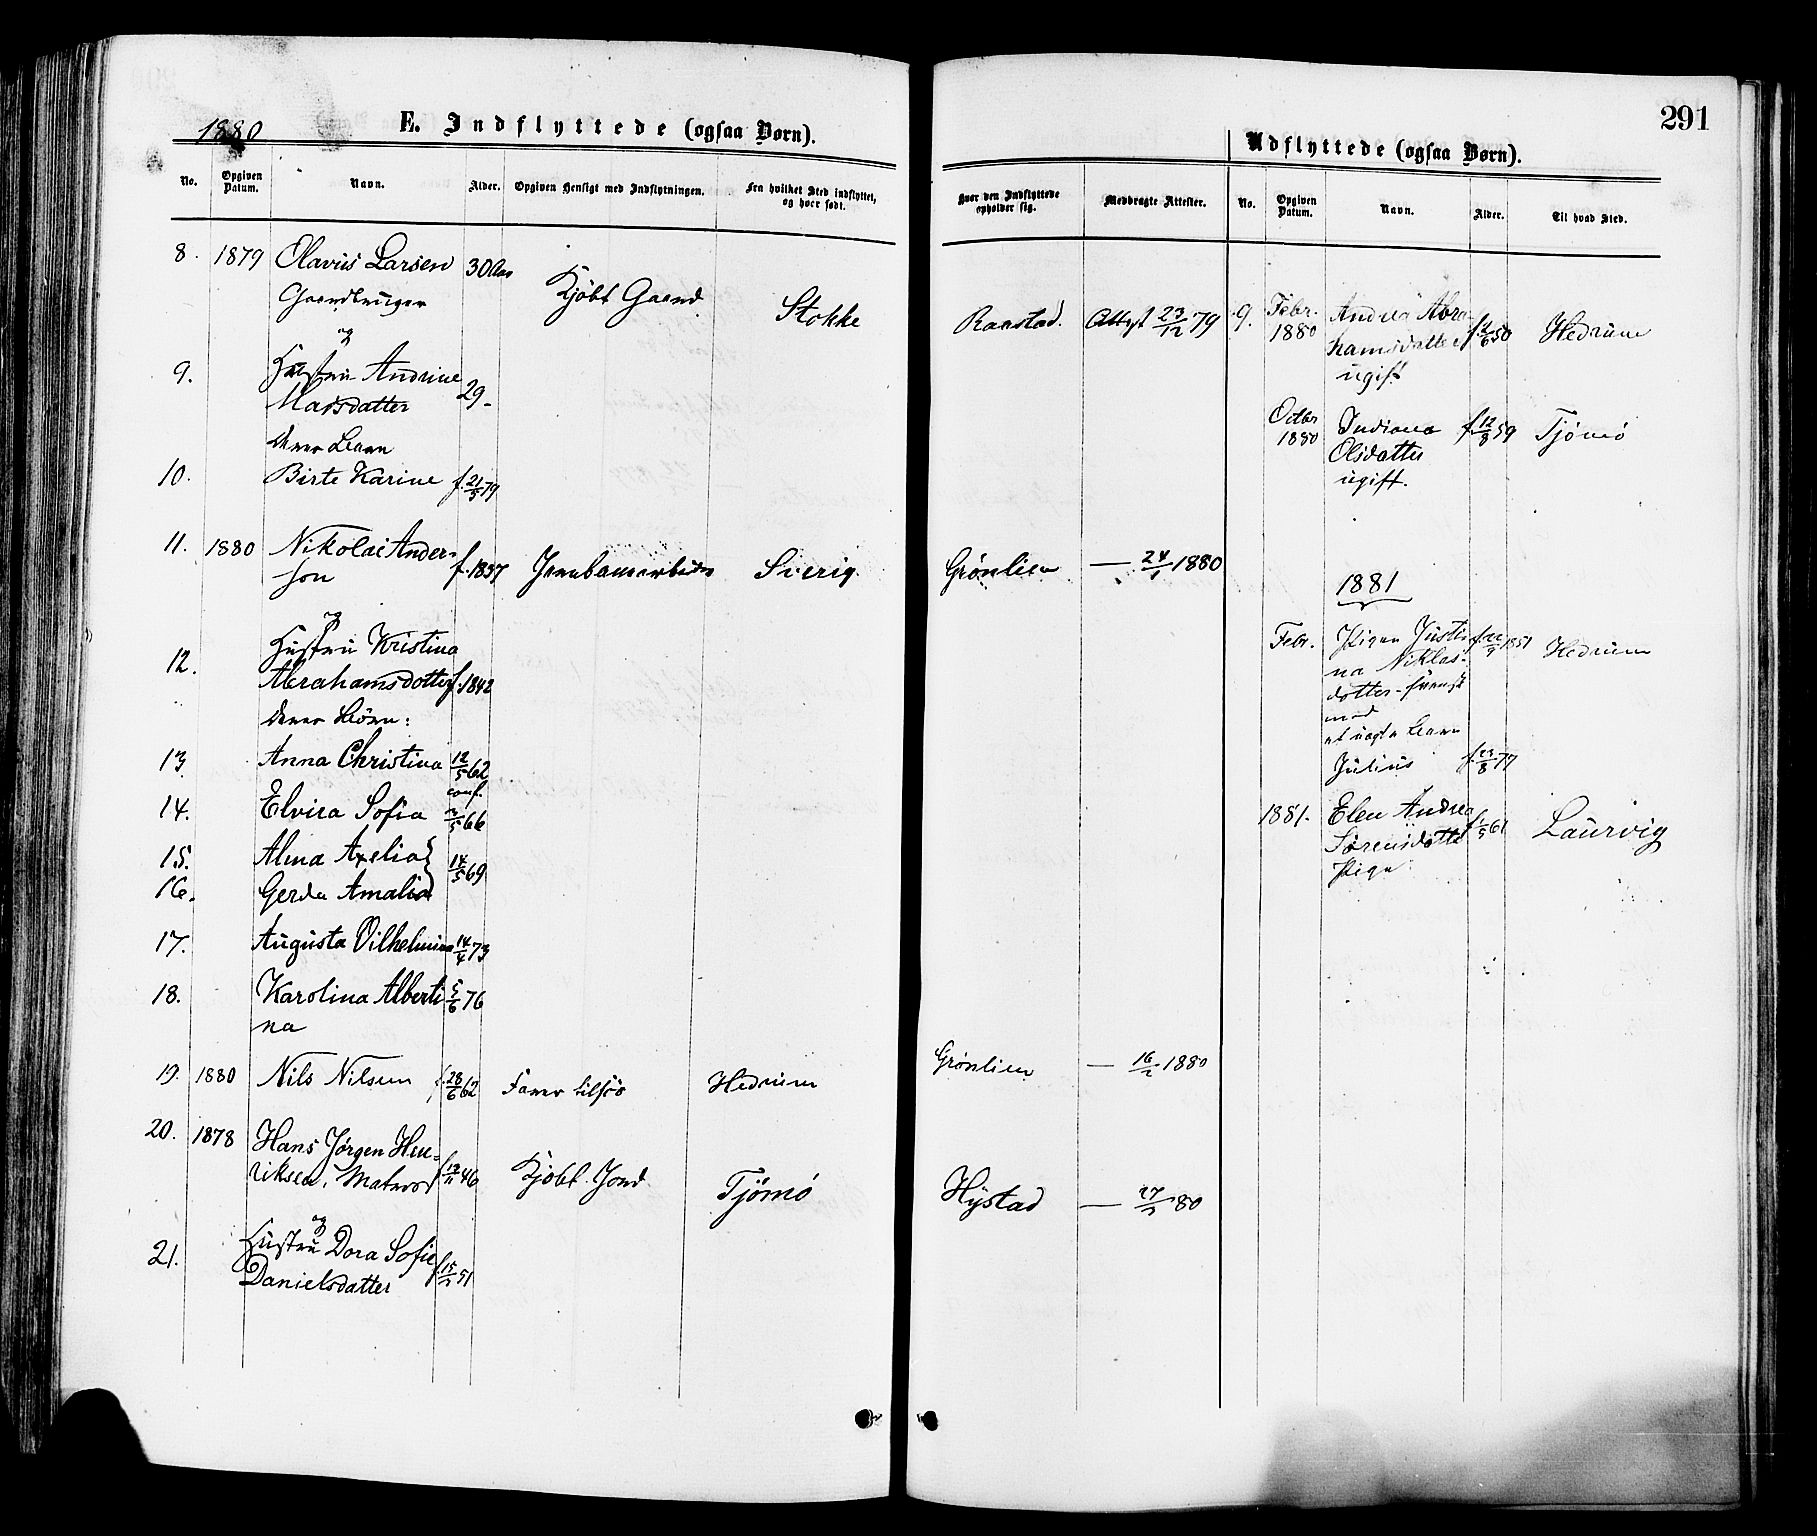 1880
E. Indflyttede (ogsaa Børn).
No. Opgiven Datum. Navn. Alder. Opgiven Hensigt med Indflytningen. Fra hvilket Sted indflyttet, og hvor født.
8. 1879 Olavus Larsen 30 Aar
Gaardbruger Kjøbt Gaard Stokke
og
9. Hustru Andrine 29-
Madsdatter
deres Barn
10. Birte Karine f. 21/5 79
11. 1880 Nikolai Anders-
son f. 1837 Jernbanearbeider Sverig.
og
12. Hustru Kristina
Abrahamsdotter f. 1842
deres Børn:
13. Anna Christina 12/5 62
conf.
14. Elvira Sofia 3/5 66
15. Alma Axelia } 14/5 69
16. Gerda Amalia
17. Augusta Vilhelmina 14/4 73
18. Karolina Alberti 5/6 76
na
19. 1880 Nils Nilsen f. 28/6 62 Farer tilsøs Hedrum
20. 1878 Hans Jørgen Hen-
riksen, Matros f. 19/11 46 Kjøbt Jord Tjømø
og
21. Hustru Dora Sofie
Danielsdatter f. 15/2 51
291
Udflyttede (ogsaa Børn).
Hvor den Indflyttede opholder sig. Medbragte Attester. No. Opgiven Datum. Navn. Alder. Til hvad Sted.
Raastad. Attest 23/12 79
Grønlien — 24/1 1880
Grønlien — 16/2 1880
Hystad — 27/2 80
9. Febr. 1880 Andrea Abra-
hamsdatter f. 2/6 50 Hedrum
ugift
Octbr 1880 Indiana f. 12/8 59 Tjømø
Olsdatter
ugift.
1881
Febr. Pigen Justi- 1851 Hedrum
na Niklas-
dotter - svensk
med
et uægte Barn
Julius f. 23/8 77
1881. Elen Andrea f. 1/5 61 Laurvig
Sørensdatter
Pige